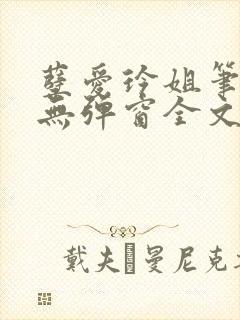 孽愛玲姐筆
無彈窗全文
戴夫曼尼克